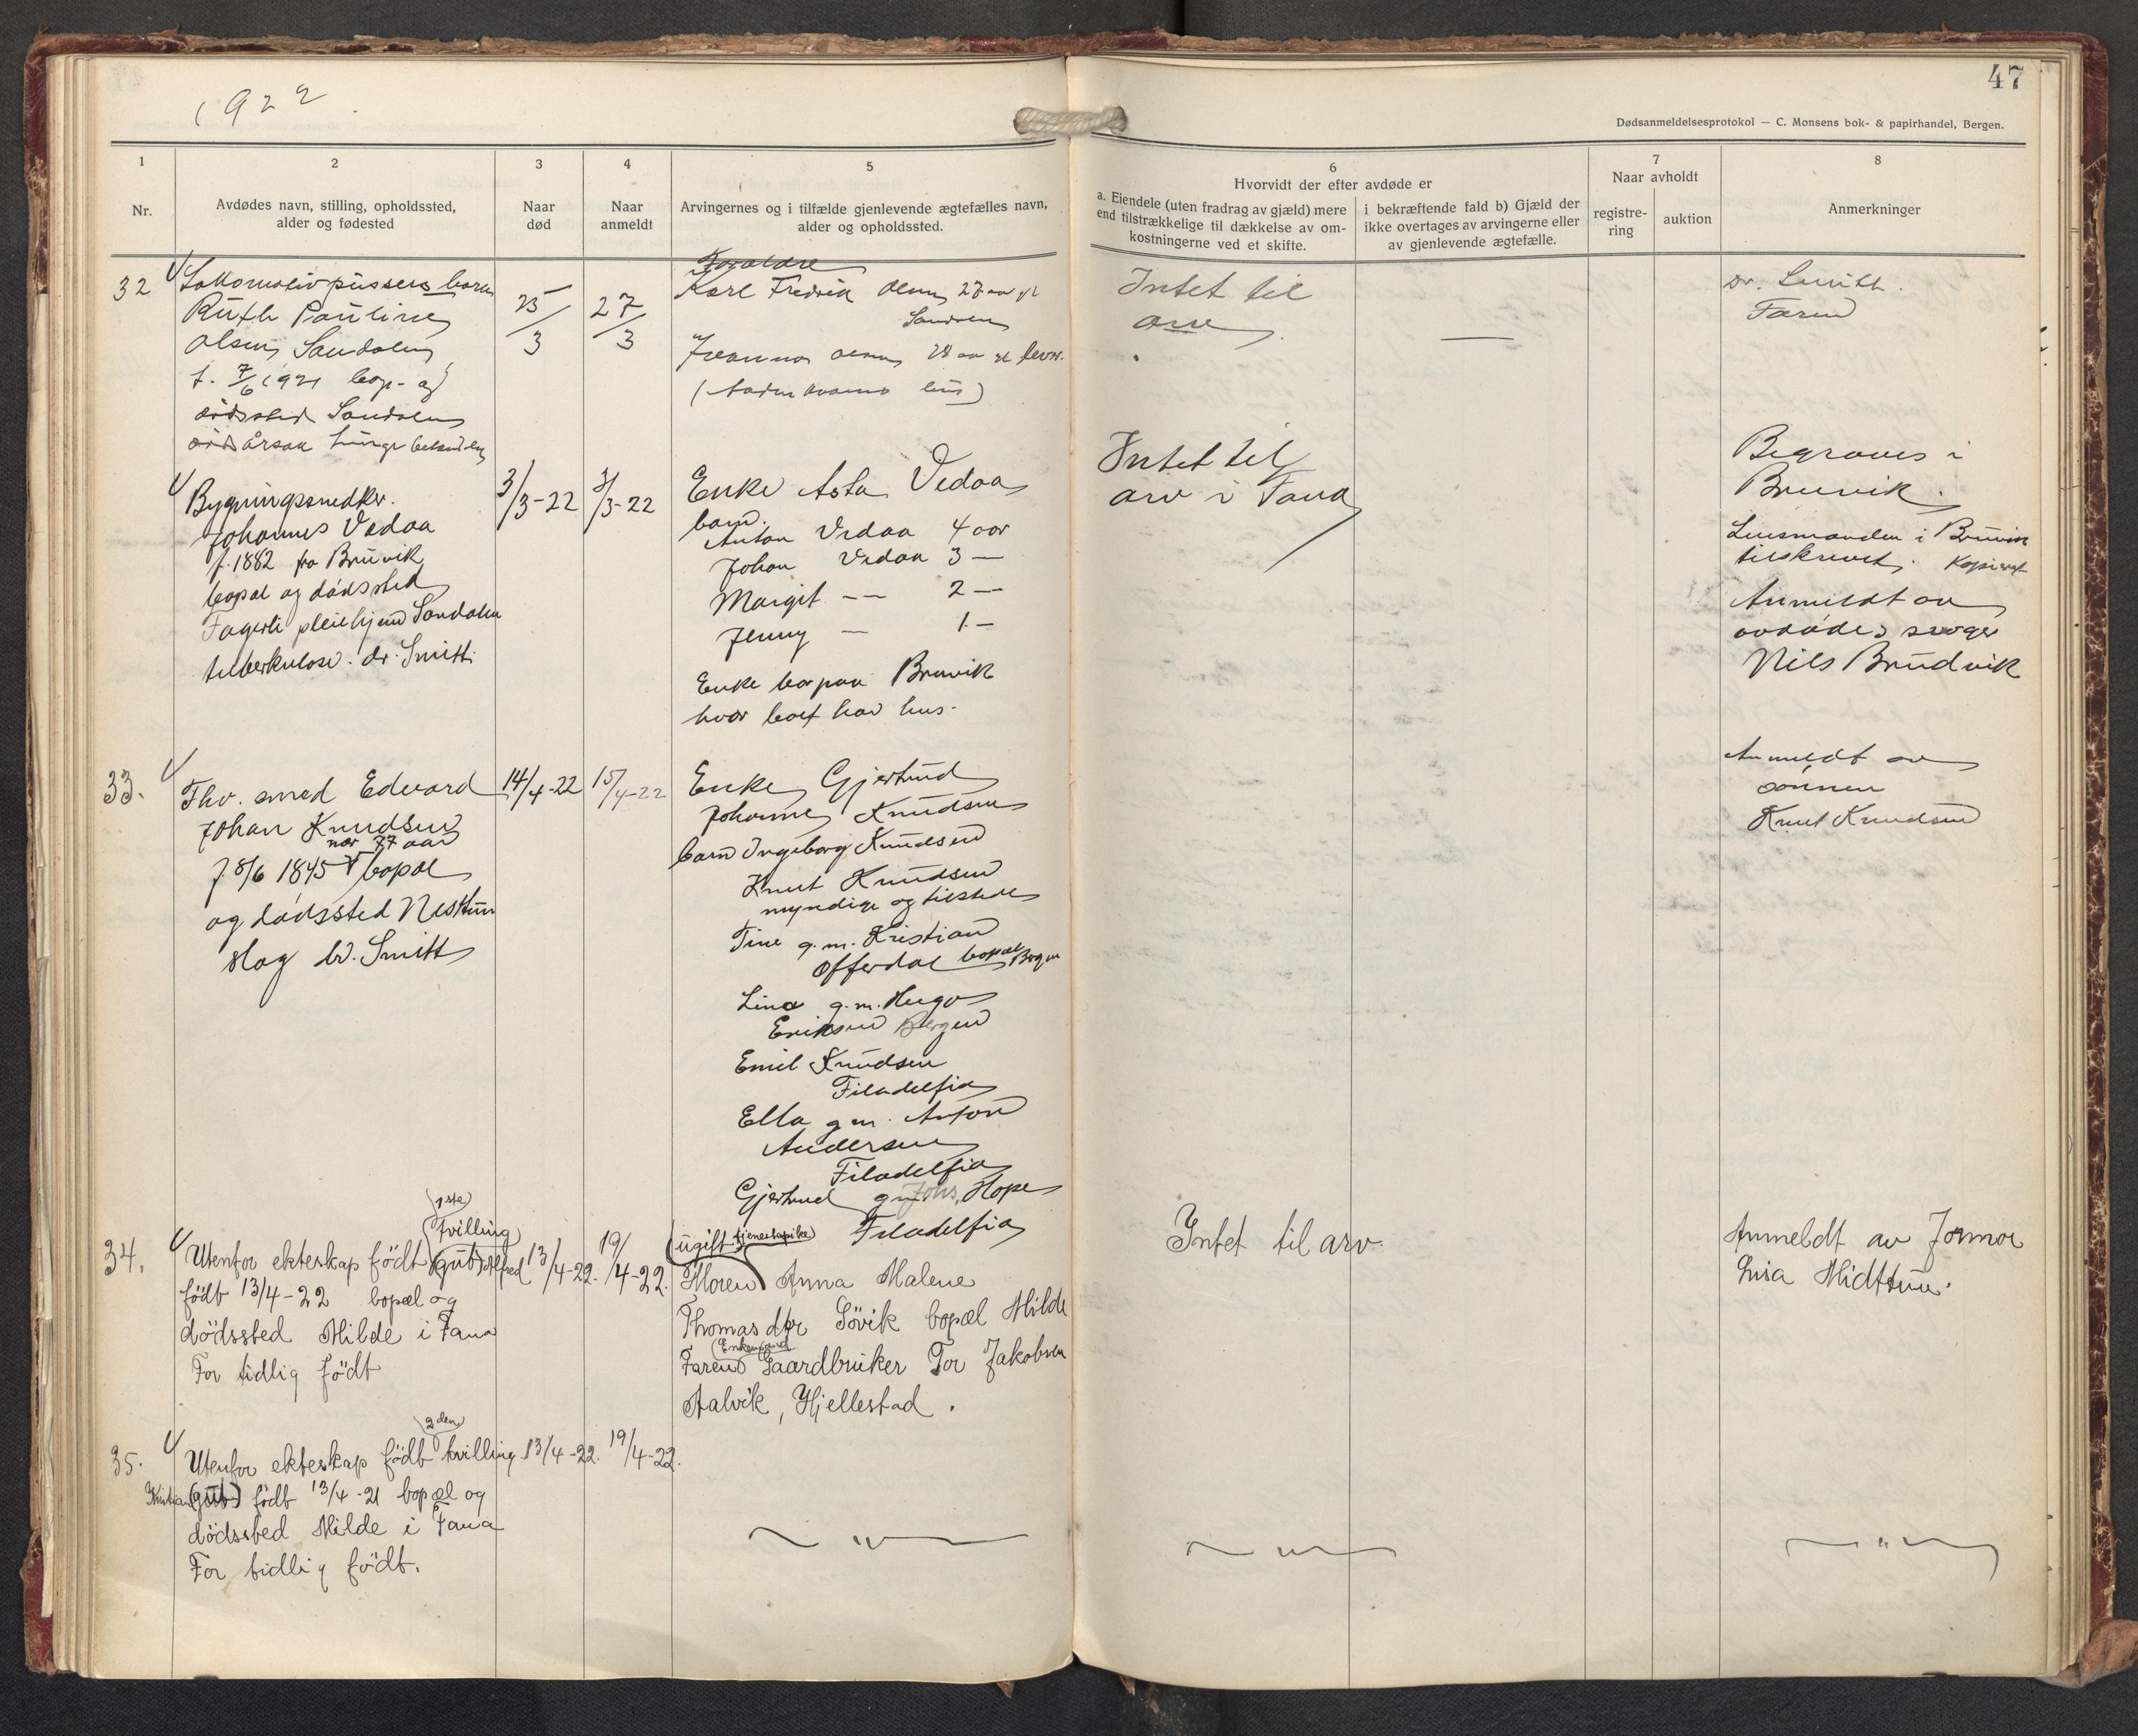 1922
47
Dødsanmeldelsesprotokol — C. Monsens bok- & papirhandel, Bergen.
1
Nr.
2
Avdødes navn, stilling, opholdssted,
alder og fødested
3
Naar
død
4
Naar
anmeldt
5
Arvingernes og i tilfælde gjenlevende ægtefælles navn,
alder og opholdssted.
6
Hvorvidt der efter avdøde er
a. Eiendele (uten fradrag av gjæld) mere
end tilstrækkelige til dækkelse av om-
kostningerne ved et skifte.
i bekræftende fald b) Gjæld der
ikke overtages av arvingerne eller
av gjenlevende ægtefælle.
7
Naar avholdt
registre-
ring
auktion
8
Anmerkninger
32
Lokomotivpussers barn
Ruth Pauline
Olsen, Sandalen
f. 7/6 1921 bop. og
dødssted Sandalen
dødsårsak
25/3
27/3
Foreldre
Karl Fredrik Olsen 27 aar
Sandalen
Olsen 28 aar
Intet til
arv
—
Dr. Smitt.
Faren
Bygningssnedker.
Johannes Vedaa
f. 1882 fra Bruvik
bopæl og dødssted
Fagerli pleiehjem Sandalen
tuberkulose. dr. Smitt.
3/3-22
3/3-22
Enke Asta Vedaa
barn.
Anton Vedaa 4 aar
Johan Vedaa 3 —
Margit — — 2 —
Jenny — 1 —
Enke bor paa Bruvik
hvor boet har hus.
Intet til
arv i Fana
Begraves i
Bruvik.
Lensmanden i Bruvik
tilskrevet. Kopiert
Anmeldt av
avdødes svoger
Nils Brudvik
33.
Fhv. smed Edvard
Johan Knudsen
nær 77 aar
f 8/6 1845 bopæl
og dødssted Nesttun
slag dr. Smitt
14/4-22
15/4-22
Enke Gjertrud
Johanne Knudsen
barn Ingeborg Knudsen
Knut Knudsen
myndige og tilstede
Tine g.m. Kristian
Offerdal bopæl Bergen
Lina g.m. Hugo
Eriksen Bergen
Emil Knudsen
Filadelfia
Ella g.m. Anton
Andersen
Filadelfia
Gjertrud g.m. Johs. Hope
Filadelfia
Anmeldt av
sønnen
Knut Knudsen
34.
1ste
tvilling
Utenfor ekteskap födt (gut) Alfred
födt 13/4-22 bopæl og
dödssted Milde i Fana
For tidlig födt
13/4-22.
19/4-22.
(ugift tjenestepike)
Moren Anna Malene
Thomasdtr Sövik bopæl Milde
(Enkemand)
Faren Gaardbruker Tor Jakobsen
Aalvik, Hjellestad.
Intet til arv.
Anmeldt av Jormor
Lisa Midttun.
35.
2den
Utenfor ekteskap födt tvilling
Kristian (gut) födt 13/4-21 bopæl og
dödssted Milde i Fana
For tidlig födt.
13/4-22.
19/4-22.
— " —
— " —
— " —